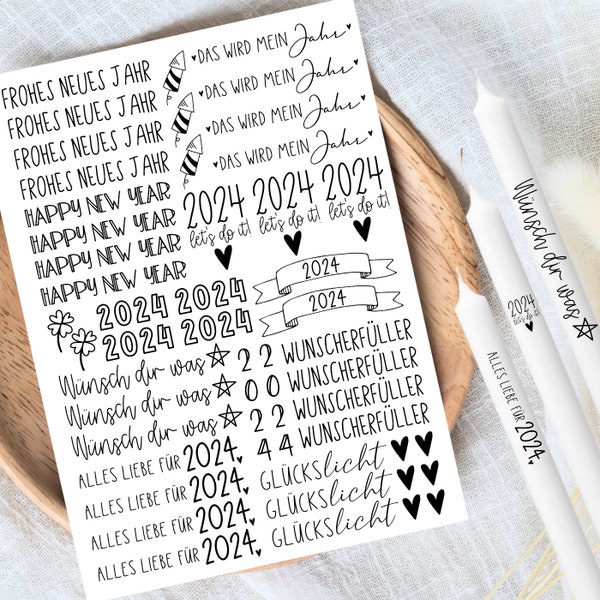 FROHES NEUES JAHR
FROHES NEUES JAHR
FROHES NEUES JAHR
FROHES NEUES JAHR
DAS WIRD MEIN Jahr
DAS WIRD MEIN Jahr
DAS WIRD MEIN Jahr
DAS WIRD MEIN Jahr
HAPPY NEW YEAR
HAPPY NEW YEAR
HAPPY NEW YEAR
HAPPY NEW YEAR
2024 2024 2024
let's do it! let's do it! let's do it!
2024
2024
2024 2024
2024 2024
Wünsch dir was
Wünsch dir was
Wünsch dir was
2 2
0 0
2 2
4 4
WUNSCHERFÜLLER
WUNSCHERFÜLLER
WUNSCHERFÜLLER
WUNSCHERFÜLLER
ALLES LIEBE FÜR 2024
ALLES LIEBE FÜR 2024
ALLES LIEBE FÜR 2024
ALLES LIEBE FÜR 2024
GLÜCKSlicht
GLÜCKSlicht
GLÜCKSlicht
Wünsch dir was
2024
let's do it!
ALLES LIEBE FÜR 2024